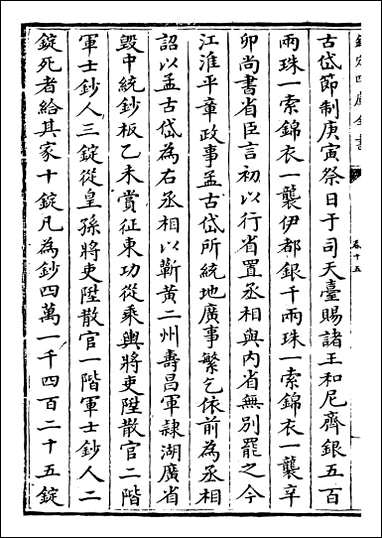 欽定四庫全書
卷十五
古岱節制庚寅祭日于司天臺賜諸王和尼齊銀五百
兩珠一索錦衣一襲伊都銀千兩珠一索錦衣一襲辛
卯尚書省臣言初以行省置丞相與内省無别罷之今
江淮平章政事孟古岱所統地廣事繁乞依前為丞相
詔以孟古岱為右丞相以蘄黄二州壽昌軍隷湖廣省
毁中統鈔板乙未賞征東功從乘輿將吏陞散官二階
軍士鈔人三錠從皇孫將吏陞散官一階軍士鈔人二
錠死者給其家十錠凡為鈔四萬一千四百二十五錠